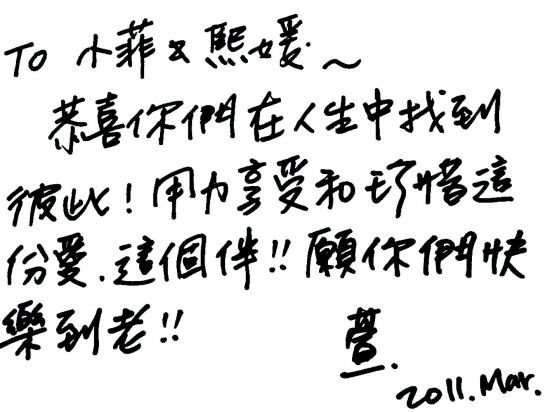 To 小菲&熙媛~
恭喜你們在人生中找到
彼此！用力享受和珍惜這
份愛.這個伴!!願你們快
樂到老!!
萱.
2011.Mar.